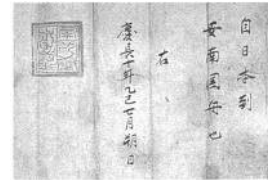 自日本到
安南国舟也
右
慶長十年乙巳七月朔日